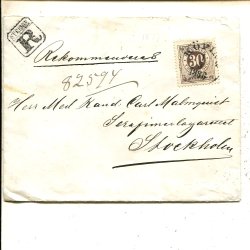 R
Rekommenderas
30
82594
Herr Med. Kand. Carl Malmquist
Serafimerlasarettet
Stockholm